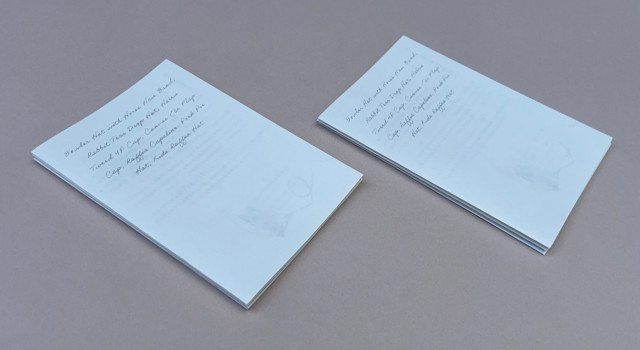 Bowler Hat with Horse Hair Braid,
Rabbit Tam Drop Hat, Halva
Tweed 4P Cap, Canvas Ear Flap
Cap, Raffia Capeline, Pork Pie
Hat, Kudu Raffia Hat
Bowler Hat with Horse Hair Braid,
Rabbit Tam Drop Hat, Halva
Tweed 4P Cap, Canvas Ear Flap
Cap, Raffia Capeline, Pork Pie
Hat, Kudu Raffia Hat